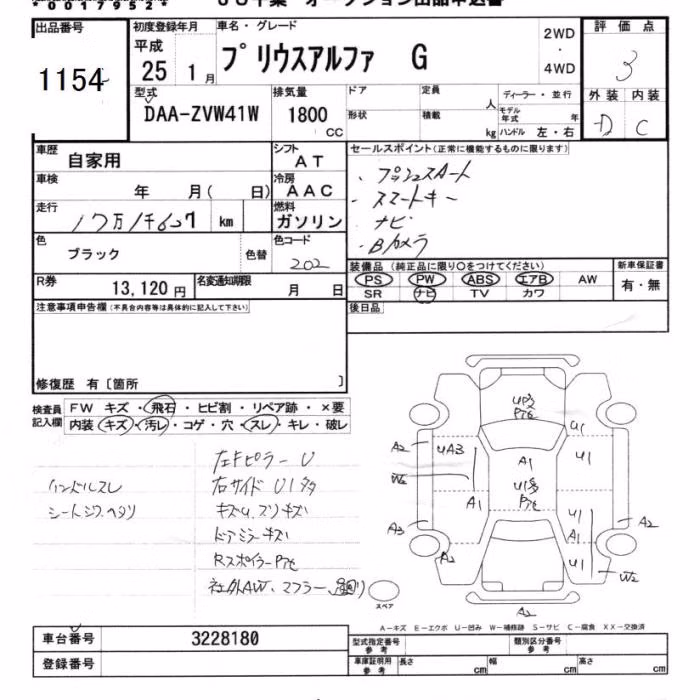 00179524 JU千葉 オークション出品申込書
出品番号 1154
初度登録年月 平成 25 1月
車名・グレード プリウスアルファ G
2WD・4WD
評価点 3
型式 DAA-ZVW41W
排気量 1800 CC
ドア 形状
定員 人
積載 kg
ディーラー・並行
モデル年式 年
ハンドル 左・右
外装 内装
D C
車歴 自家用
シフト AT
セールスポイント(正常に機能するものに限ります)
・プッシュスタート
・スマートキー
・ナビ
・Bカメラ
車検 年 月( 日)
冷房 AAC
走行 17万1千607 km
燃料 ガソリン
色 ブラック 色替
色コード 202
装備品(純正品に限り○をつけてください)
PS PW ABS エアB AW
SR ナビ TV カワ
新車保証書 有・無
R券 13,120円
名変通知期限 月 日
後日品
注意事項申告欄(不具合内容等は具体的に記入して下さい)
修復歴 有〔箇所 〕
検査員記入欄
FW キズ・飛石・ヒビ割・リペア跡・×要
内装・キズ・汚レ・コゲ・穴・スレ・キレ・破レ
ハンドルスレ
シートシワ、ヘタリ
左Fピラー U
右サイド U1多
キズU、スリキズ
ドアミラーキズ
Rスポイラー P化
社外AW、マフラー
P化
U1
A2 UA3 A1 U1
W2
A1 U1多 P化 U1
A3 A1 A2
A2 U1 W2
A2
スペア
A-キズ E-エクボ U-凹み W-補修跡 S-サビ C-腐食 XX-交換済
車台番号 3228180
登録番号
型式指定番号 参考
類別区分番号 参考
車庫証明用 参考
長さ cm
幅 cm
高さ cm